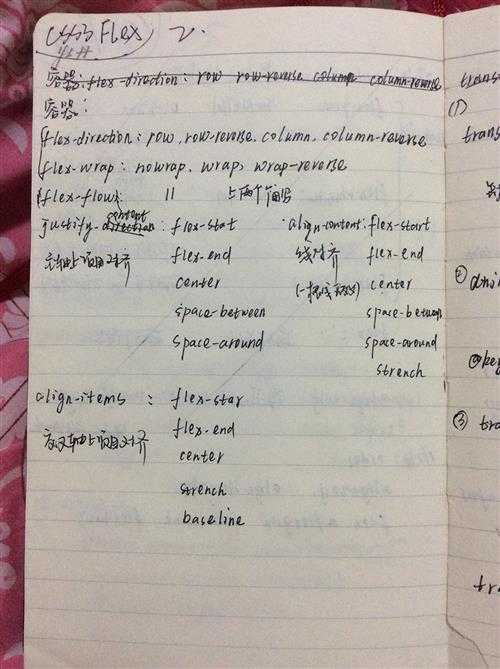 CSS的Flex 2.
容器: flex-direction: row row-reverse column column-reverse
容器:
flex-direction: row, row-reverse, column, column-reverse
flex-wrap: nowrap, wrap, wrap-reverse
flex-flow: 11 上两个简写
justify-direction: flex-stat
content
主轴上项目对齐 flex-end
center
space-between
space-around
align-content: flex-start
线对齐 flex-end
center
space-between
space-around
strench
align-items: flex-star
交叉轴上项目对齐 flex-end
center
strench
baseline
trans
(1)
trans
②
③ tra